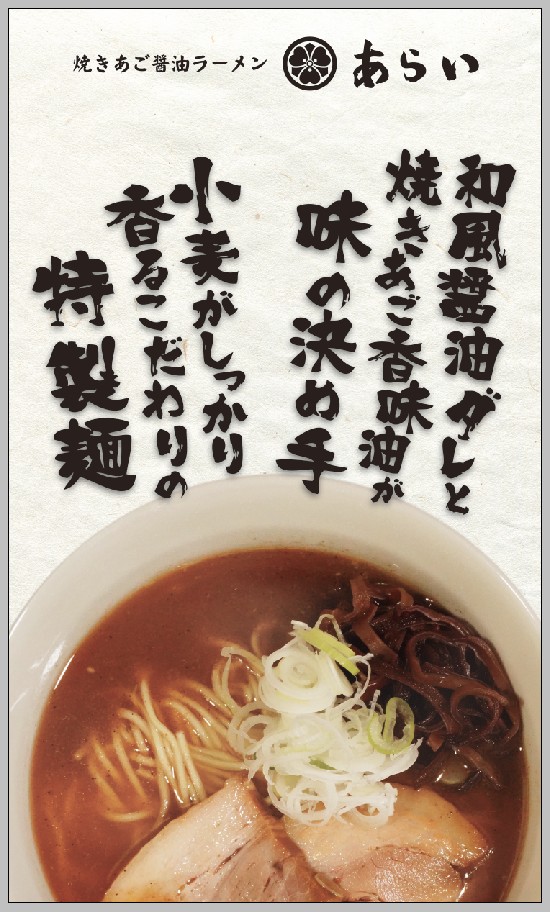 焼きあご醤油ラーメン あらい
和風醤油ダレと
焼きあご香味油が
味の決め手
小麦がしっかり
香るこだわりの
特製麺